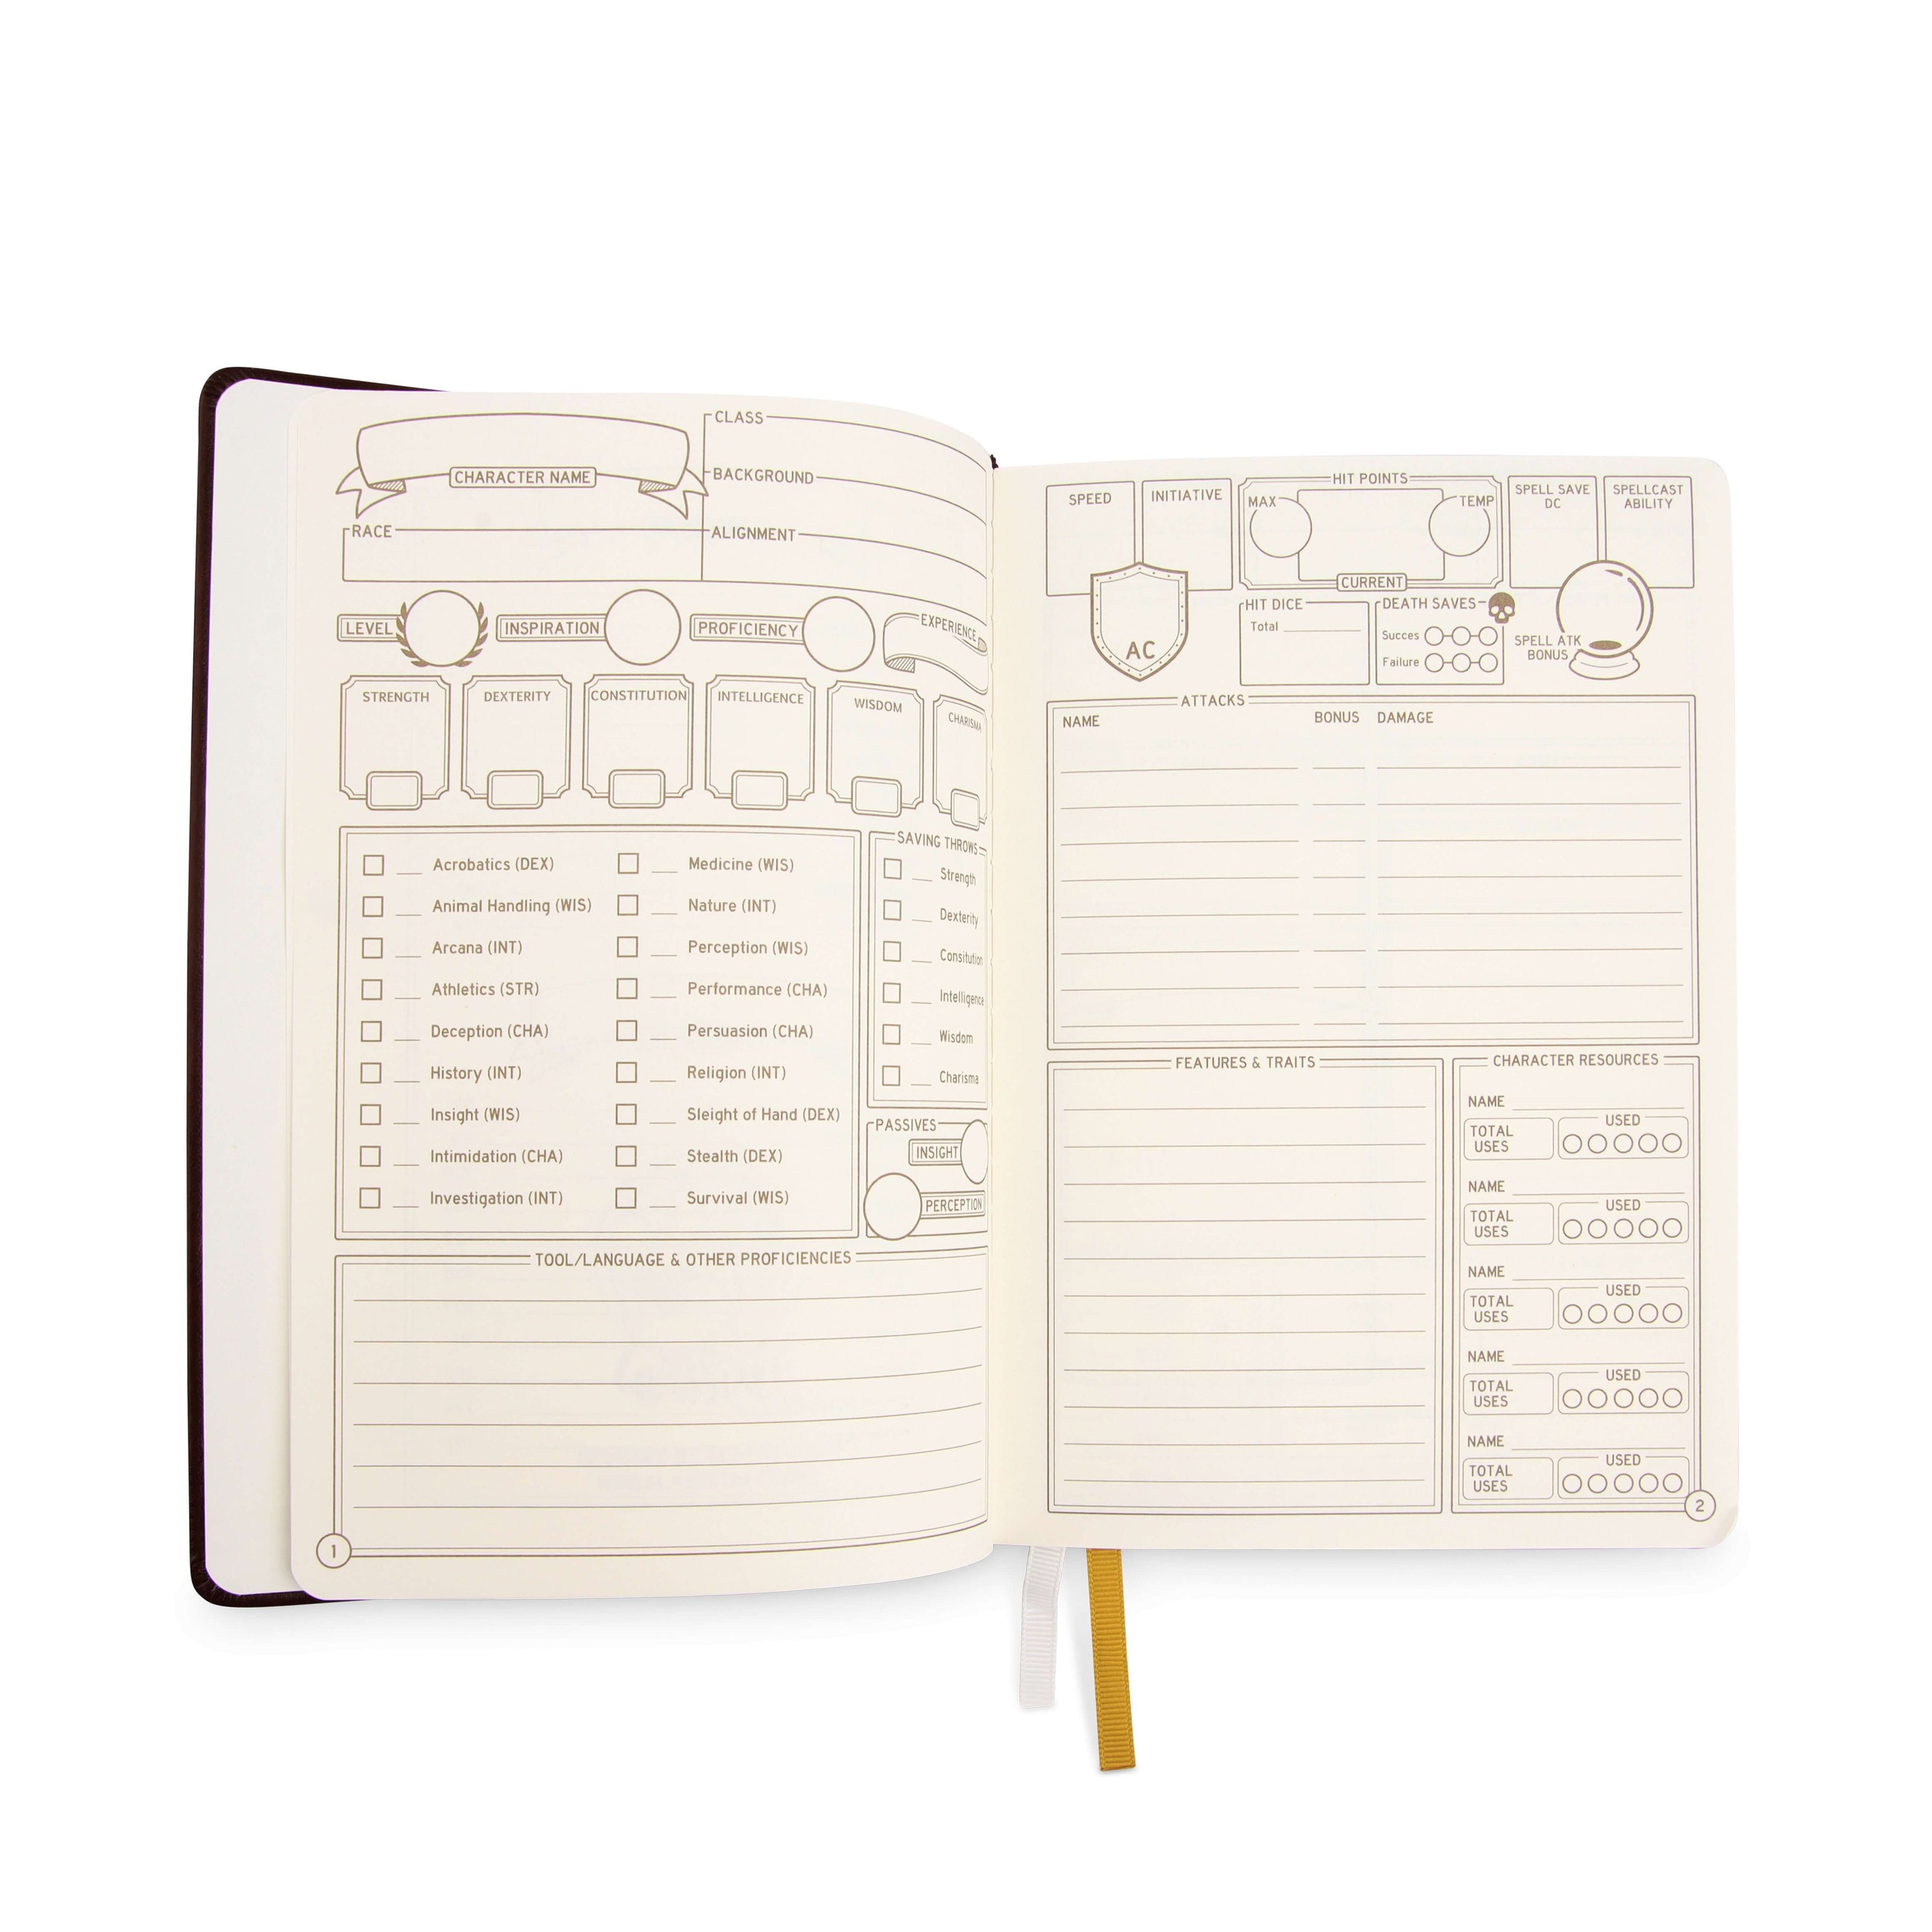 CHARACTER NAME
CLASS
BACKGROUND
RACE
ALIGNMENT
LEVEL
INSPIRATION
PROFICIENCY
EXPERIENCE
STRENGTH
DEXTERITY
CONSTITUTION
INTELLIGENCE
WISDOM
CHARISMA
Acrobatics (DEX)
Animal Handling (WIS)
Arcana (INT)
Athletics (STR)
Deception (CHA)
History (INT)
Insight (WIS)
Intimidation (CHA)
Investigation (INT)
Medicine (WIS)
Nature (INT)
Perception (WIS)
Performance (CHA)
Persuasion (CHA)
Religion (INT)
Sleight of Hand (DEX)
Stealth (DEX)
Survival (WIS)
SAVING THROWS
Strength
Dexterity
Consitution
Intelligence
Wisdom
Charisma
PASSIVES
INSIGHT
PERCEPTION
TOOL/LANGUAGE & OTHER PROFICIENCIES
1
SPEED
INITIATIVE
AC
HIT POINTS
MAX
TEMP
CURRENT
HIT DICE
Total
DEATH SAVES
Succes
Failure
SPELL SAVE
DC
SPELLCAST
ABILITY
SPELL ATK
BONUS
ATTACKS
NAME
BONUS
DAMAGE
FEATURES & TRAITS
CHARACTER RESOURCES
NAME
TOTAL
USES
USED
NAME
TOTAL
USES
USED
NAME
TOTAL
USES
USED
NAME
TOTAL
USES
USED
NAME
TOTAL
USES
USED
2